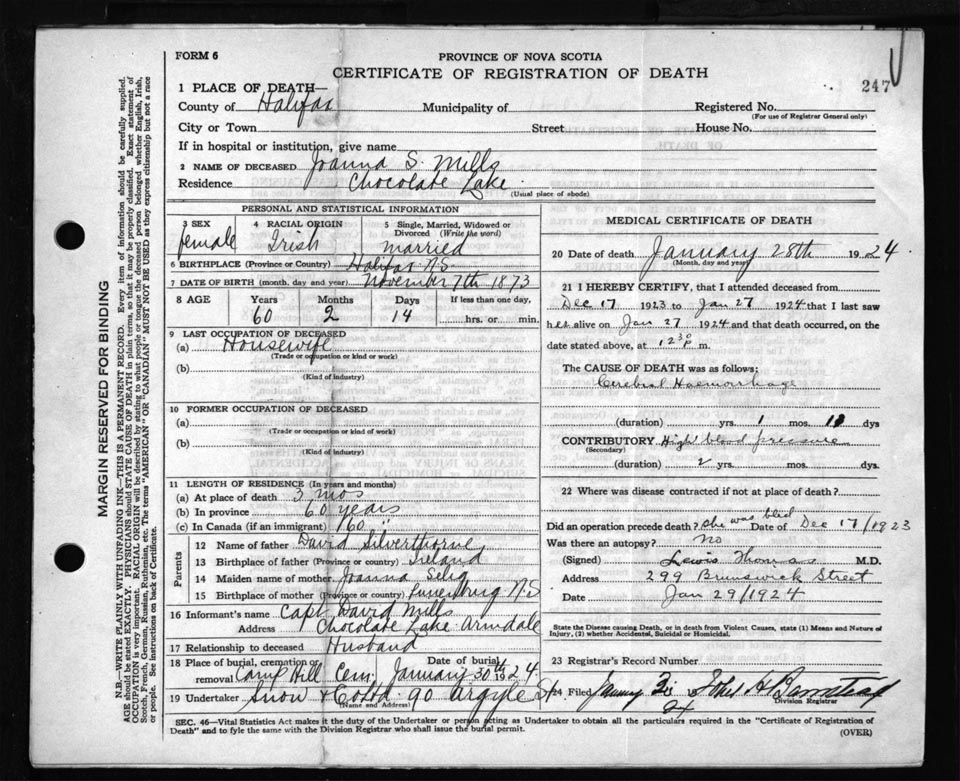 FORM 6
PROVINCE OF NOVA SCOTIA
CERTIFICATE OF REGISTRATION OF DEATH
247
1 PLACE OF DEATH—
County of Halifax Municipality of Registered No.
(For use of Registrar General only)
City or Town Street House No.
If in hospital or institution, give name
2 NAME OF DECEASED Joanna S. Mills
Residence Chocolate Lake
(Usual place of abode)
PERSONAL AND STATISTICAL INFORMATION
3 SEX 4 RACIAL ORIGIN 5 Single, Married, Widowed or Divorced (Write the word)
female Irish married
6 BIRTHPLACE (Province or Country) Halifax N.S.
7 DATE OF BIRTH (month, day and year) November 7th 1873
8 AGE Years Months Days If less than one day,
60 2 14 hrs. or min.
9 LAST OCCUPATION OF DECEASED
(a) Housewife
(Trade or occupation or kind or work)
(b)
(Kind of industry)
10 FORMER OCCUPATION OF DECEASED
(a)
(Trade or occupation or kind or work)
(b)
(Kind of industry)
11 LENGTH OF RESIDENCE (In years and months)
(a) At place of death 3 mos
(b) In province 60 years
(c) In Canada (if an immigrant) 60 "
Parents
12 Name of father David Silverthorne
13 Birthplace of father (Province or country) Ireland
14 Maiden name of mother Joanna Selig
15 Birthplace of mother (Province or country) Lunenburg N.S
16 Informant's name Capt David Mills
Address Chocolate Lake Armdale
17 Relationship to deceased Husband
18 Place of burial, cremation or Date of burial
Camp Hill Cem. January 30th 1924
19 Undertaker Snow & Co Ltd. 90 Argyle St
(Name and Address)
MEDICAL CERTIFICATE OF DEATH
20 Date of death January 28th 1924
(Month, day and year)
21 I HEREBY CERTIFY, that I attended deceased from
Dec 17 1923 to Jan 27 1924 that I last saw
her alive on Jan 27 1924 and that death occurred, on the
date stated above, at 12 30 P m.
The CAUSE OF DEATH was as follows:
Cerebral Haemorrhage
(duration) yrs. 1 mos. dys
CONTRIBUTORY High blood pressure
(Secondary)
(duration) 2 yrs. mos. dys.
22 Where was disease contracted if not at place of death?
Did an operation precede death? she was bled Date of Dec 17/1923
Was there an autopsy? No
(Signed) Lewis Thomas M.D.
Address 299 Brunswick Street
Date Jan 29/1924
State the Disease causing Death, or in death from Violent Causes, state (1) Means and Nature of Injury, (2) whether Accidental, Suicidal or Homicidal.
23 Registrar's Record Number
24 Filed January
Division Registrar
SEC. 46—Vital Statistics Act makes it the duty of the Undertaker or person acting as Undertaker to obtain all the particulars required in the "Certificate of Registration of
Death" and to fyle the same with the Division Registrar who shall issue the burial permit. (OVER)
MARGIN RESERVED FOR BINDING
N.B.—WRITE PLAINLY WITH UNFADING INK—THIS IS A PERMANENT RECORD. Every item of information should be carefully supplied.
AGE should be stated EXACTLY. PHYSICIANS should STATE CAUSE OF DEATH in plain terms, so that it may be properly classified. Exact statement of
OCCUPATION is very important. RACIAL ORIGIN will be described by stating to what people or tongue the deceased person belonged whether English, Irish,
Scotch, French, German, Russian, Ruthenian, etc. The terms "AMERICAN" OR "CANADIAN" MUST NOT BE USED as they express citizenship but not a race
or people. See instructions on back of Certificate.